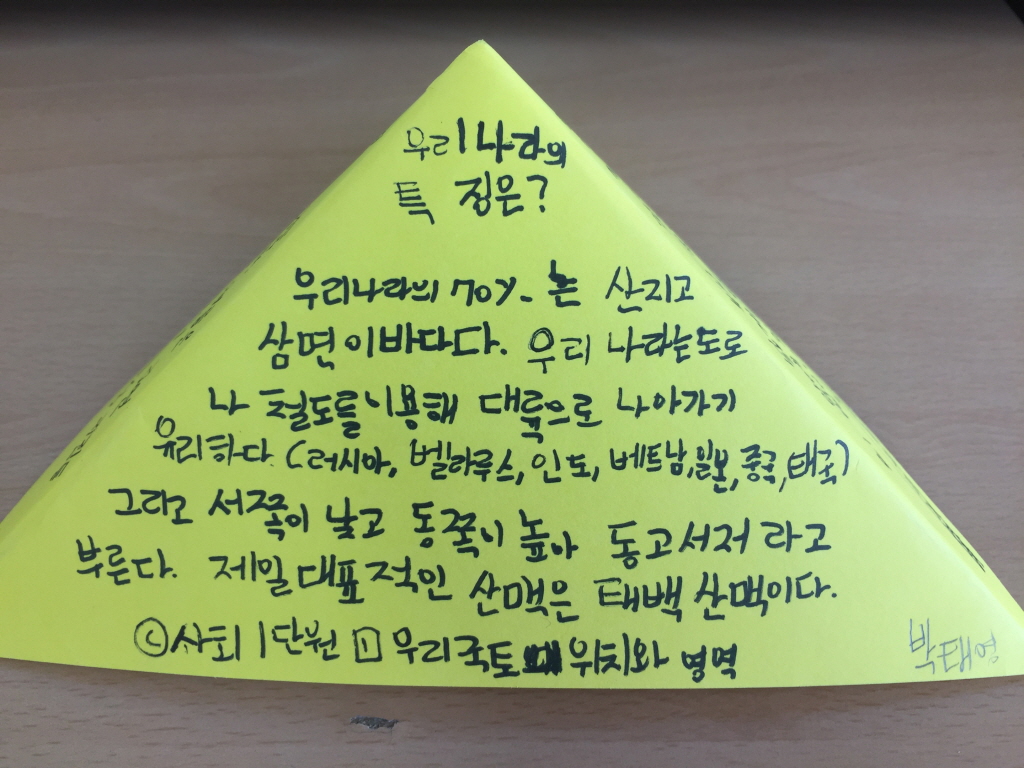 우리나라의
특 징은?
우리나라의 70%는 산지고
삼면이바다다. 우리 나라는도로
나 철도를이용해 대륙으로 나아가기
유리하다. (러시아, 벨라루스, 인도, 베트남, 일본, 중국, 태국)
그리고 서쪽이 낮고 동쪽이 높아 동고서저 라고
부른다. 제일 대표적인 산맥은 태백 산맥이다.
ⓒ사회 1단원 1 우리국토 위치와 영역
박태영